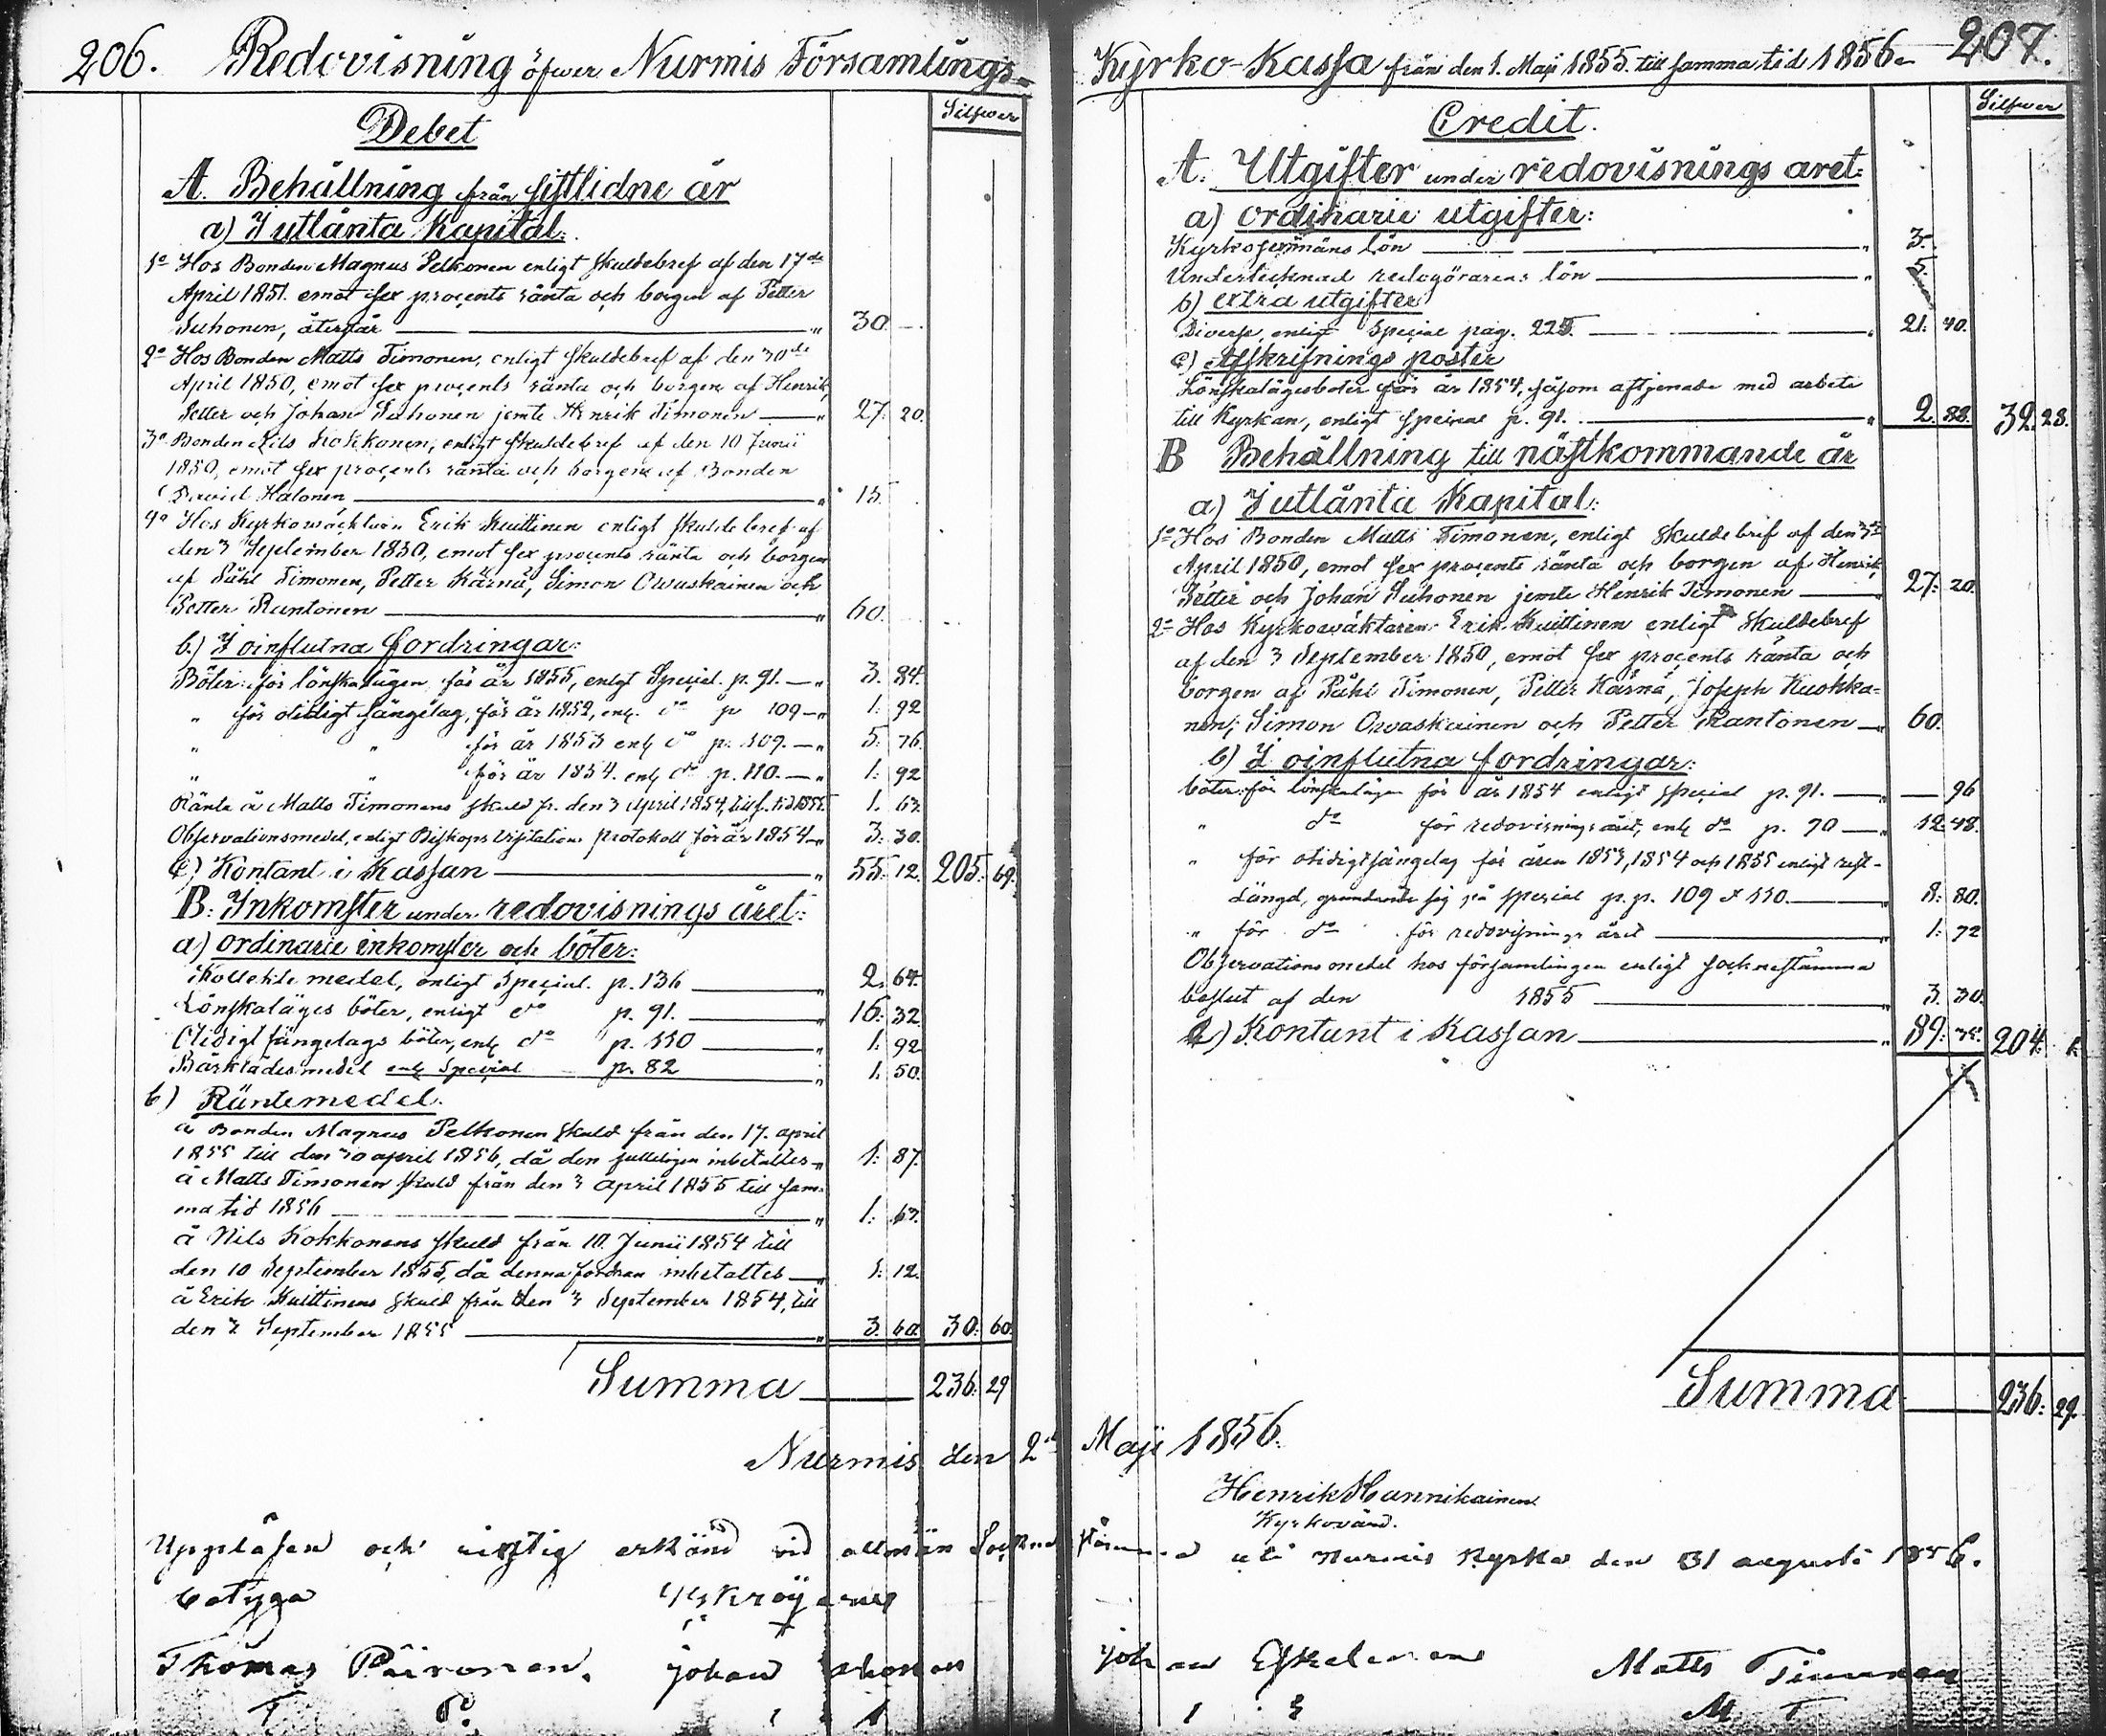 206. Redovisning öfwer Nurmis Församlings-
Silfwer
Debet
A. Behållning från sistlidne år
a) I utlånta Kapital:
1o Hos Bonden Magnus Pelkonen enligt skuldebref af den 17de
April 1851. emot sex procents ränta och borgen af Petter
Suhonen, återstår — " 30 —
2o Hos Bonden Matts Timonen, enligt skuldebref af den 30de
April 1850, emot sex procents ränta och borgen af Henrik,
Petter och Johan Suhonen jemte Henrik Timonen — " 27. 20.
3o Bonden Nils Kokkonen, enligt skuldebref af den 10 Junii
1850, emot sex procents ränta och borgen af Bonden
David Halonen — " 15.
4o Hos Kyrkowäcktaren Erik Kuittinen enligt skuldebref af
den 3 September 1850, emot sex procents ränta och borgen
af Påhl Timonen, Petter Kärnä, Simon Owaskainen och
Petter Rantonen — " 60.
b.) I oinflutna fordringar:
Böter för lönskalägen för år 1855, enligt Special. p. 91. — " 3. 84.
" för otidigt sängelag, för år 1852, enl. do p 109 — " 1: 92
" " för år 1853 enl do p. 109. — " 5. 76.
" " för år 1854. enl do p. 110. — " 1: 92
Ränta å Matts Timonens skuld fr. den 3 April 1854, till s. tid 1855. 1. 63.
Observationsmedel, enligt Biskops Visitations protokoll för år 1854 — " 3: 30.
c) Kontant i Kassan — " 55. 12. 205: 69.
B: Inkomster under redovisnings året:
a) ordinarie inkomster och böter:
Kollekte medel, enligt Special. p. 136 — " 2. 64.
Lönskaläges böter, enligt do p. 91. — " 16. 32
Otidigt sängelags böter, enl do p. 110 — " 1: 92
Bårklädesmedel enl Special p. 82 — " 1. 50.
b) Räntemedel.
å Bonden Magnus Pelkonen skuld från den 17. april
1855 till den 30 april 1856, då den fulleligen inbetaltes — " 1: 87.
å Matts Timonen skuld från den 3 april 1855 till sam-
ma tid 1856 — " 1: 63.
å Nils Kokkonens skuld från 10. Junii 1854 till
den 10 September 1855, då denna fordran inbetaltes — " 1: 12.
å Erik Kuittinens skuld från den 3 September 1854, till
den 3 September 1855 — " 3. 60. 30. 60.
Summa — 236. 29
Nurmis den 2
Uppläsen och riktig erkänd vid allmän Sockne
betyga
Thomas Päivonen. Johan
T. P.
Kyrko-Kassa från den 1. Maji 1855. till samma tid 1856. 207.
Silfwer
Credit.
A. Utgifter under redovisnings året:
a) ordinarie utgifter:
Kyrkosexmäns lön — " 3.
Undertecknad redogörarens lön — " 5.
b) extra utgifter
Diverse, enligt Special pag. 225. — " 21. 40.
c) Afskrifnings poster
Lönskalägesböter för år 1854, såsom aftjenade med arbete
till Kyrkan, enligt special p. 91. — " 2. 88. 32. 28.
B Behållning till nästkommande år
a) I utlånta Kapital:
1o Hos Bonden Matts Timonen, enligt skuldebref af den 3
April 1850, emot sex procents ränta och borgen af Henrik,
Petter och Johan Suhonen jemte Henrik Timonen — 27: 20.
2o Hos Kyrkowäktaren Erik Kuittinen enligt skuldebref
af den 3 September 1850, emot sex procents ränta och
borgen af Påhl Timonen, Petter Kärnä, Joseph Kuokka-
nen, Simon Owaskainen och Petter Rantonen — " 60.
b) I oinflutna fordringar:
böter för lönskalägen för år 1854 enligt special p. 91. — " — 96
" do för redovisnings året, enl do p. 70 — " 12. 48.
" för otidigt sängelag för åren 1853, 1854 och 1855 enligt rest-
längd, grundande sig på special p.p. 109 & 110. — " 8: 80.
" för do för redovisnings året — " 1: 72
Observationsmedel hos församlingen enligt sockenstämma
beslut af den 1855 — " 3. 30.
c) Kontant i Kassan — " 89: 204.
Summa — 236: 29.
Maji 1856.
Henrik Hannikainen
Kyrkovärd.
stämma uti Nurmis Kyrka den 31 augusti 1856.
Johan Eskelinen Matts Timonen
M T